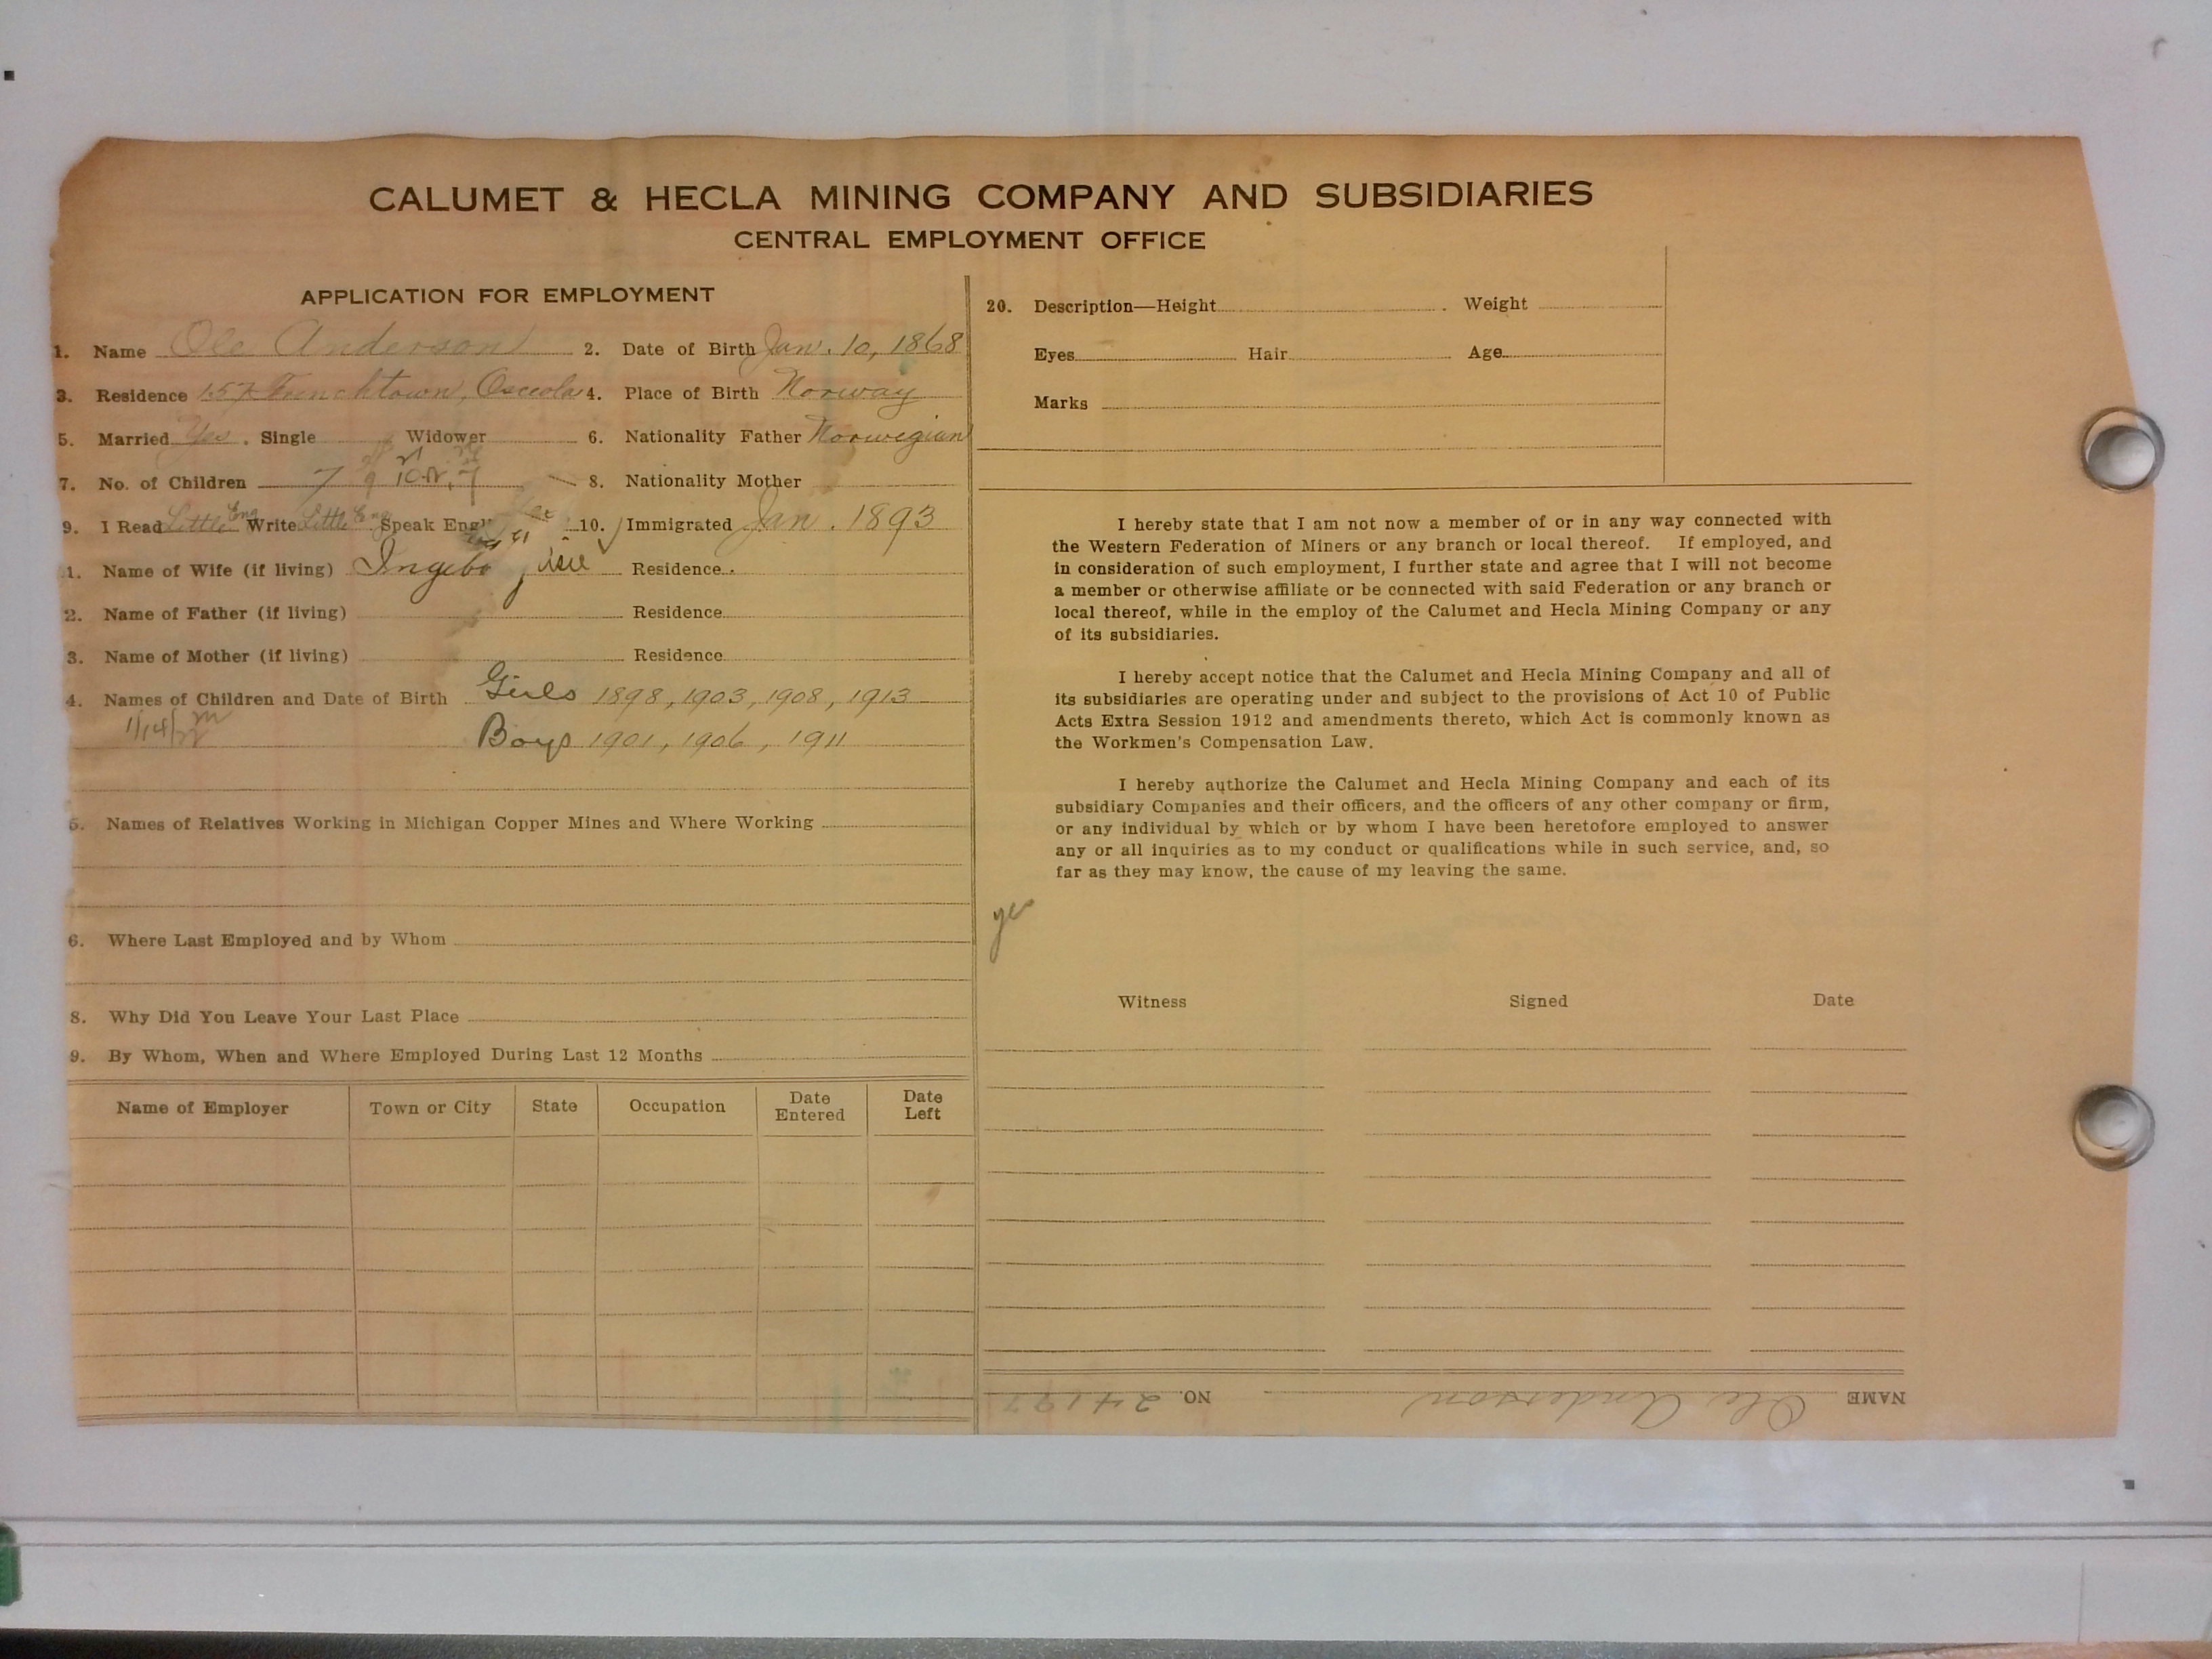 CALUMET & HECLA MINING COMPANY AND SUBSIDIARIES
CENTRAL EMPLOYMENT OFFICE
APPLICATION FOR EMPLOYMENT
1. Name Ole Anderson 2. Date of Birth Jan. 10, 1868
3. Residence 157 Frenchtown, Osceola 4. Place of Birth Norway
5. Married Yes. Single Widower 6. Nationality Father Norwegian
7. No. of Children 7 8. Nationality Mother
9. I Read Little Eng Write Little Eng Speak Eng 10. Immigrated Jan. 1893
1. Name of Wife (if living) Residence
2. Name of Father (if living) Residence
3. Name of Mother (if living) Residence
4. Names of Children and Date of Birth Girls 1898, 1903, 1908, 1913
Boys 1901, 1906, 1911
5. Names of Relatives Working in Michigan Copper Mines and Where Working
6. Where Last Employed and by Whom
8. Why Did You Leave Your Last Place
9. By Whom, When and Where Employed During Last 12 Months
Name of Employer Town or City State Occupation Date Entered Date Left
20. Description—Height Weight
Eyes Hair Age
Marks
I hereby state that I am not now a member of or in any way connected with
the Western Federation of Miners or any branch or local thereof. If employed, and
in consideration of such employment, I further state and agree that I will not become
a member or otherwise affiliate or be connected with said Federation or any branch or
local thereof, while in the employ of the Calumet and Hecla Mining Company or any
of its subsidiaries.
I hereby accept notice that the Calumet and Hecla Mining Company and all of
its subsidiaries are operating under and subject to the provisions of Act 10 of Public
Acts Extra Session 1912 and amendments thereto, which Act is commonly known as
the Workmen's Compensation Law.
I hereby authorize the Calumet and Hecla Mining Company and each of its
subsidiary Companies and their officers, and the officers of any other company or firm,
or any individual by which or by whom I have been heretofore employed to answer
any or all inquiries as to my conduct or qualifications while in such service, and, so
far as they may know, the cause of my leaving the same.
yes
Witness Signed Date
NAME Ole Anderson NO. 24197